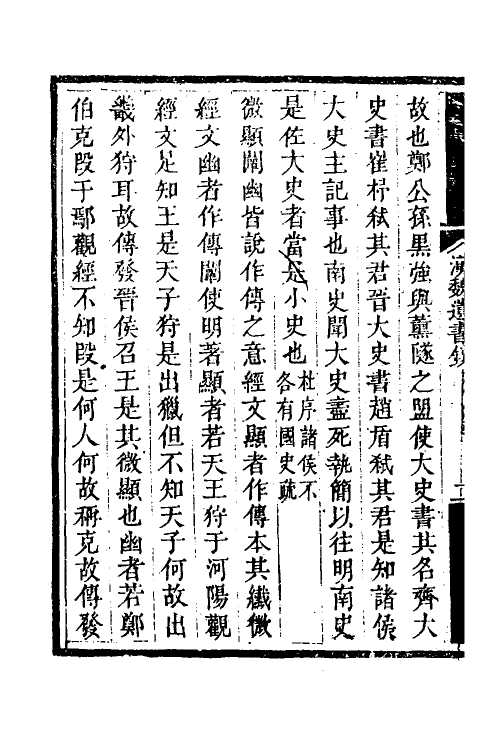 漢魏遺書鈔
故也鄭公孫黑強與薰隧之盟使大史書其名齊大
史書崔杼弒其君晉大史書趙盾弒其君是知諸侯
大史主記事也南史聞大史盡死執簡以往明南史
是佐大史者當是小史也杜序諸侯不各有國史疏
微顯闡幽皆說作傳之意經文顯者作傳本其纖微
經文幽者作傳闡使明著顯者若天王狩于河陽觀
經文足知王是天子狩是出獵但不知天子何故出
畿外狩耳故傳發晉侯召王是其微顯也幽者若鄭
伯克段于鄢觀經不知段是何人何故稱克故傳發